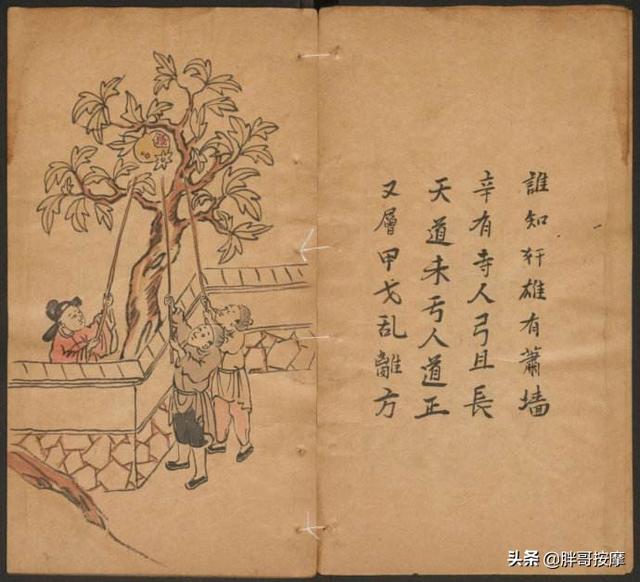 誰知犴雄有蕭墻
辛有寺人弓且長
天道未亏人道正
又層甲戈乱離方
头条 @胖哥按摩